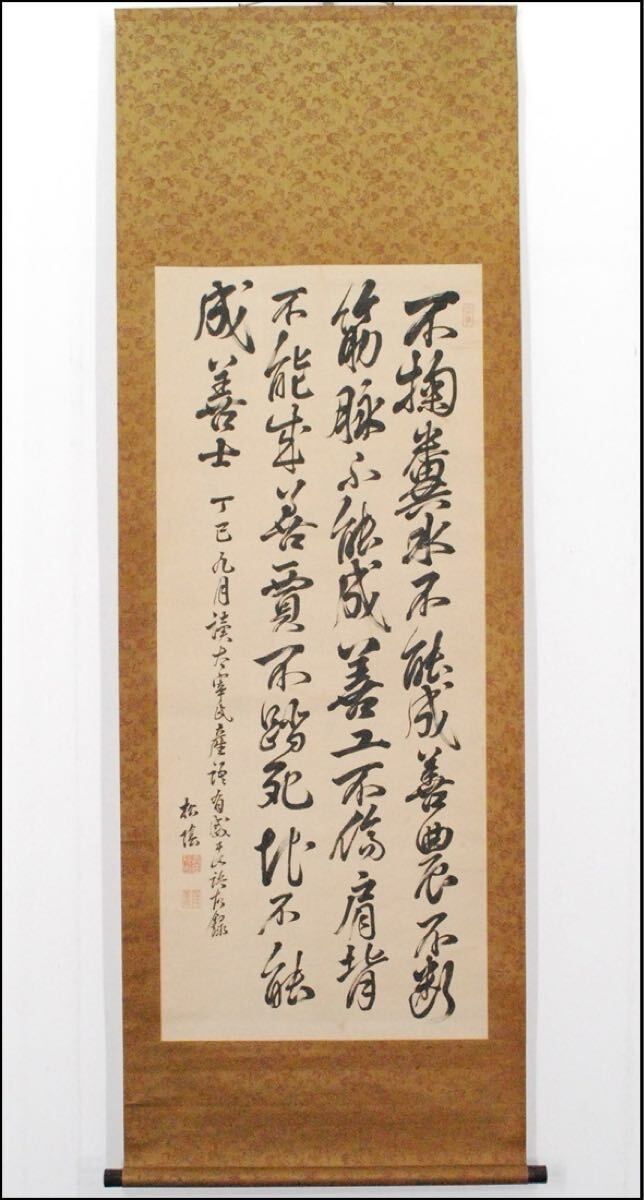 不掬糞水不能成善農不断
筋脉不能成善工不傷肩背
不能成善賈不踏死地不能
成善士
丁巳九月讀太宰氏産語有感于此語右録
松陰